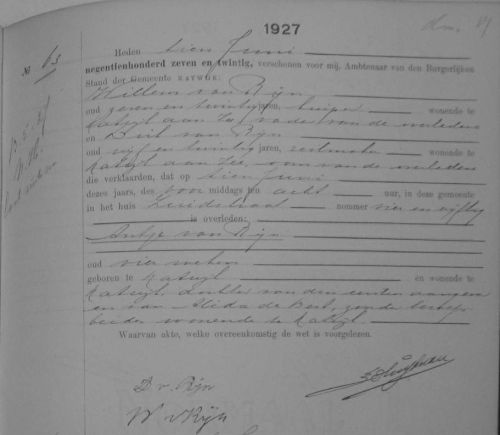 1927
№ 63
Heden tien Juni
negentienhonderd zeven en twintig, verschenen voor mij, Ambtenaar van den Burgerlijken
Stand der Gemeente KATWIJK:
Willem van Rijn
oud zeven en twintig jaren, kuiper wonende te
Katwijk aan Zee, vader van de overledene
en Dirk van Rijn
oud vijf en twintig jaren, wonende te
Katwijk aan Zee, oom van de overledene
die verklaarden, dat op tien Juni
dezes jaars, des voor middags ten acht uur, in deze gemeente
in het huis Zuidstraat nommer vier en vijftig
is overleden:
Antje van Rijn
oud vier weken
geboren te Katwijk en wonende te
Katwijk, dochter van den eersten aangever
en van Alida de Best, zonder beroep
beiden wonende te Katwijk
Waarvan akte, welke overeenkomstig de wet is voorgelezen.
D v. Rijn
W v Rijn